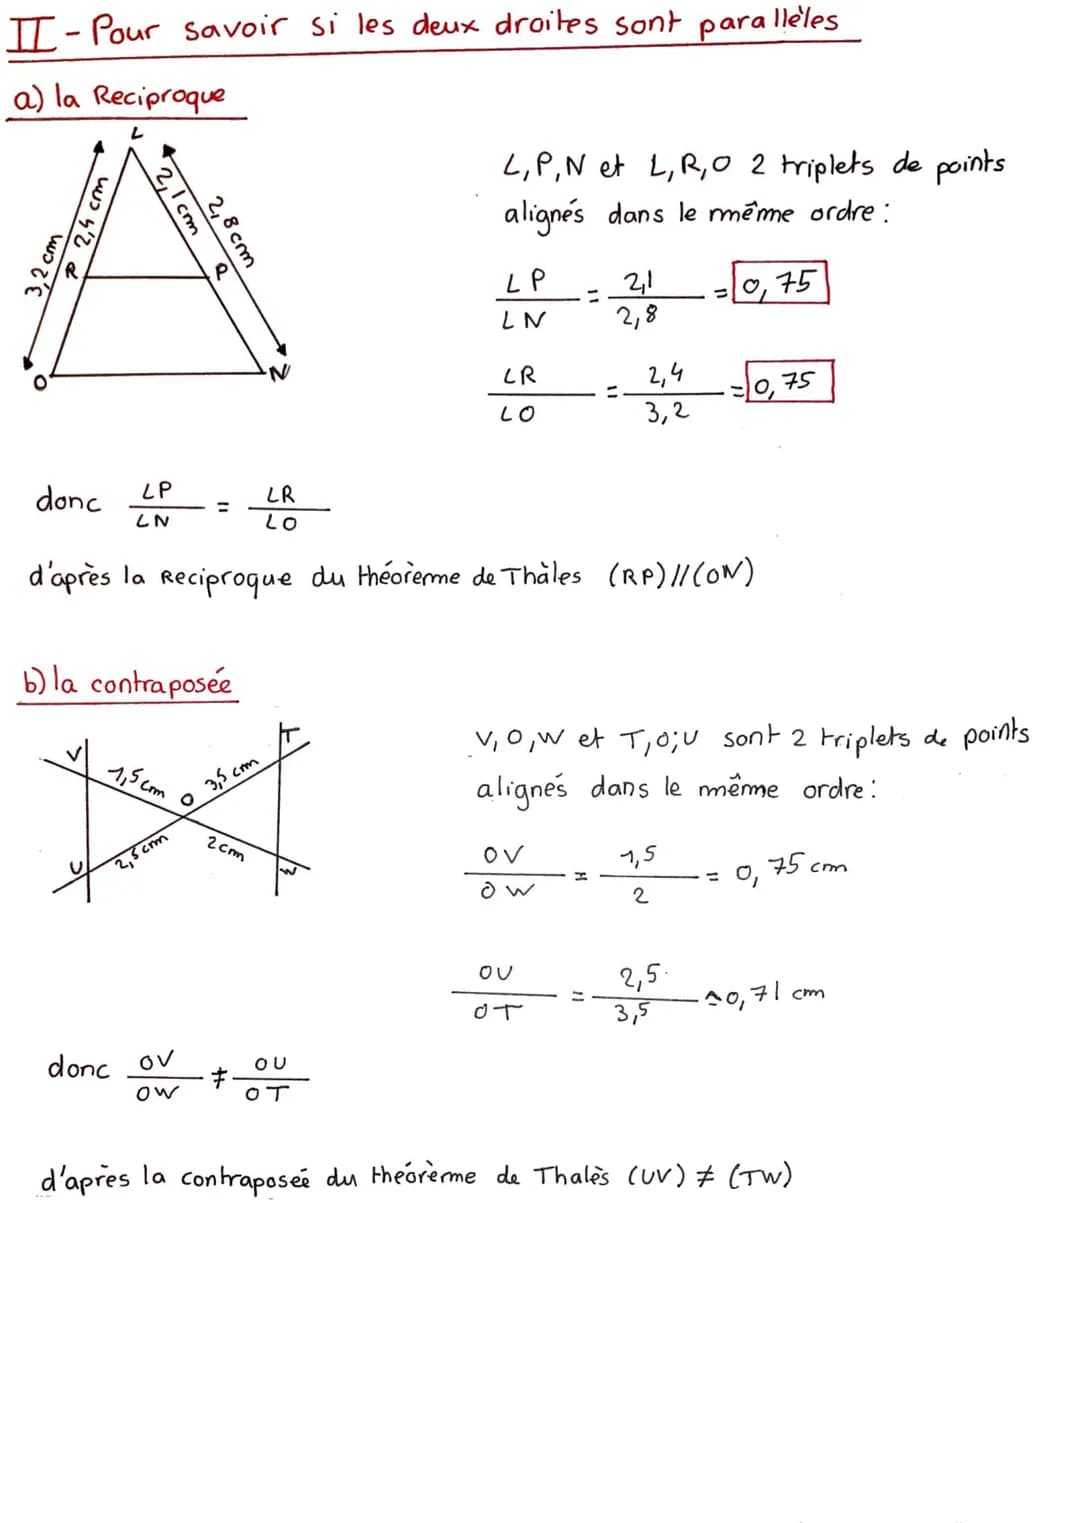 II - Pour savoir si les deux droites sont parallèles
a) la Reciproque
L
3,2 cm
R
2,4 cm
2,1 cm
2,8 cm
P
O
N
L, P, N et L, R, O 2 triplets de points
alignés dans le même ordre :
LP/LN = 2,1/2,8 = 0,75
LR/LO = 2,4/3,2 = 0,75
donc LP/LN = LR/LO
d'après la Reciproque du théorème de Thàles (RP)//(ON)
b) la contraposée
V
T
1,5 cm
O
3,5 cm
U
2,5 cm
2 cm
W
V, O, W et T, O; U sont 2 triplets de points
alignés dans le même ordre :
OV/OW = 1,5/2 = 0,75 cm
OU/OT = 2,5/3,5 ≃ 0,71 cm
donc OV/OW ≠ OU/OT
d'après la contraposeé du théorème de Thalès (UV) ≠ (TW)